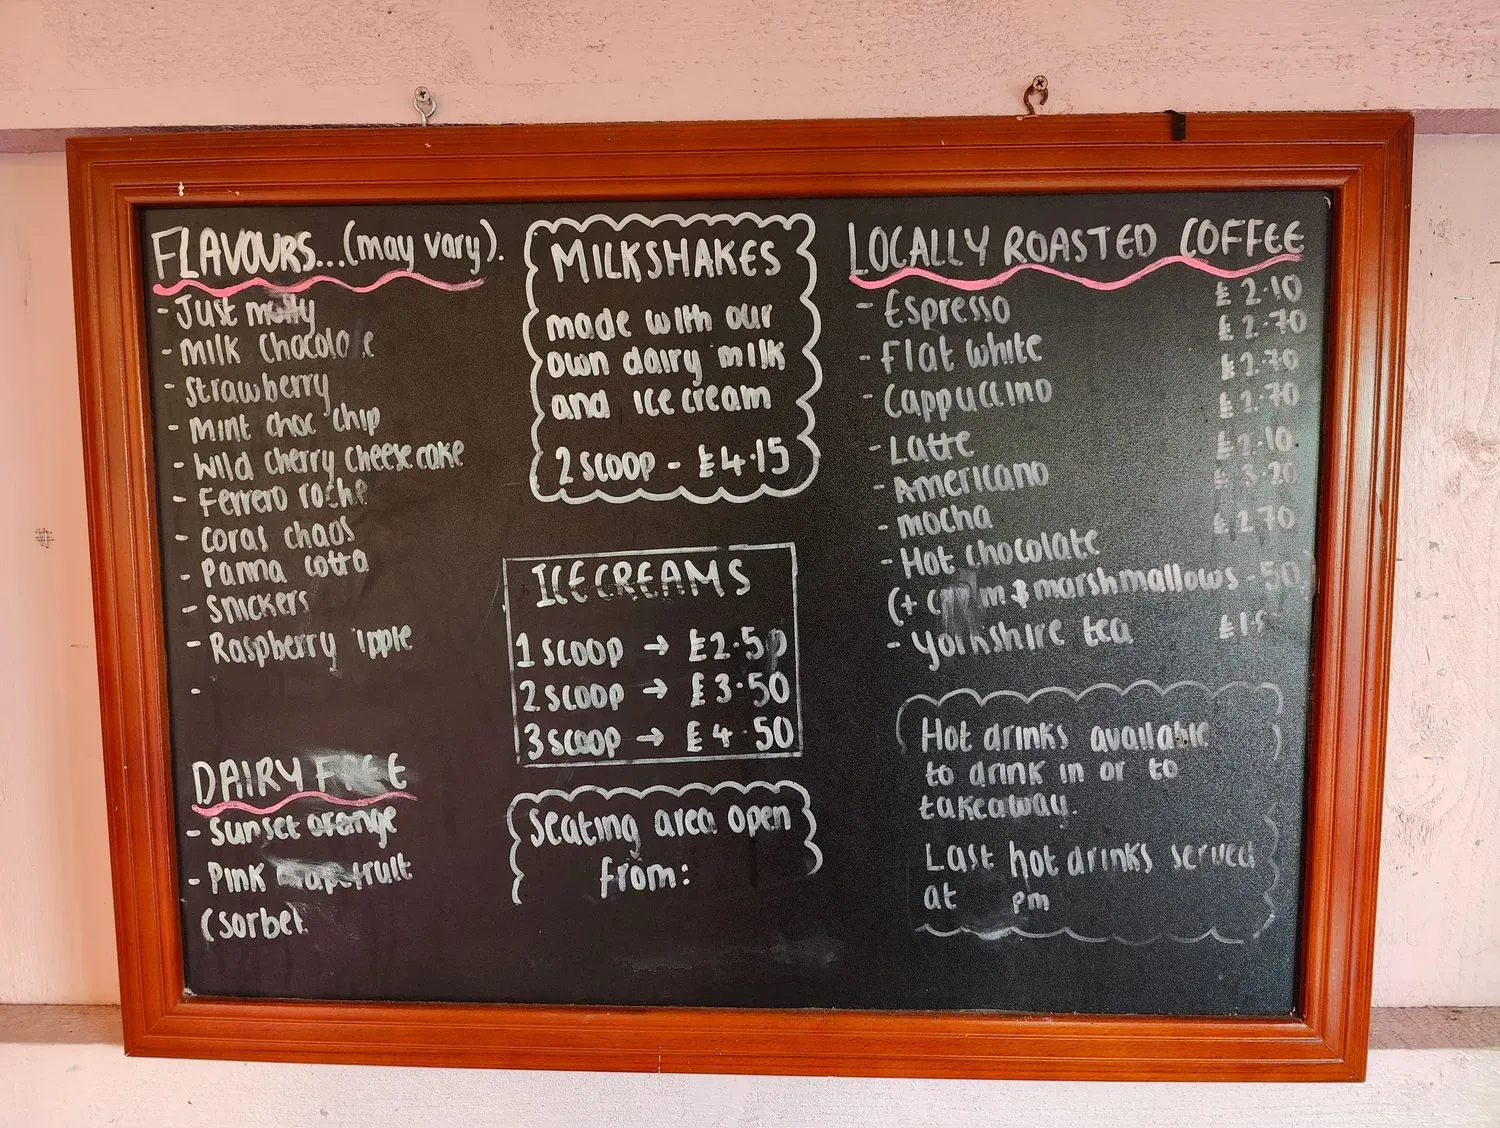 FLAVOURS...(may vary).
- Just molly
- Milk chocolate
- Strawberry
- Mint choc chip
- Wild cherry cheesecake
- Ferrero roche
- Coral chaos
- Panna cotta
- Snickers
- Raspberry ripple
-
DAIRY FREE
- Sunset orange
- Pink Grapefruit
(sorbet
MILKSHAKES
made with our
own dairy milk
and ice cream
2 scoop - £4.15
ICE CREAMS
1 scoop → £2.50
2 scoop → £3.50
3 scoop → £4.50
Seating area open
from:
LOCALLY ROASTED COFFEE
- Espresso £2.10
- Flat white £2.70
- Cappuccino £2.70
- Latte £2.70
- Americano £2.10
- Mocha £3.20
- Hot chocolate £2.70
(+ cream & marshmallows .50
- Yorkshire tea
Hot drinks available
to drink in or to
takeaway.
Last hot drinks served
at pm